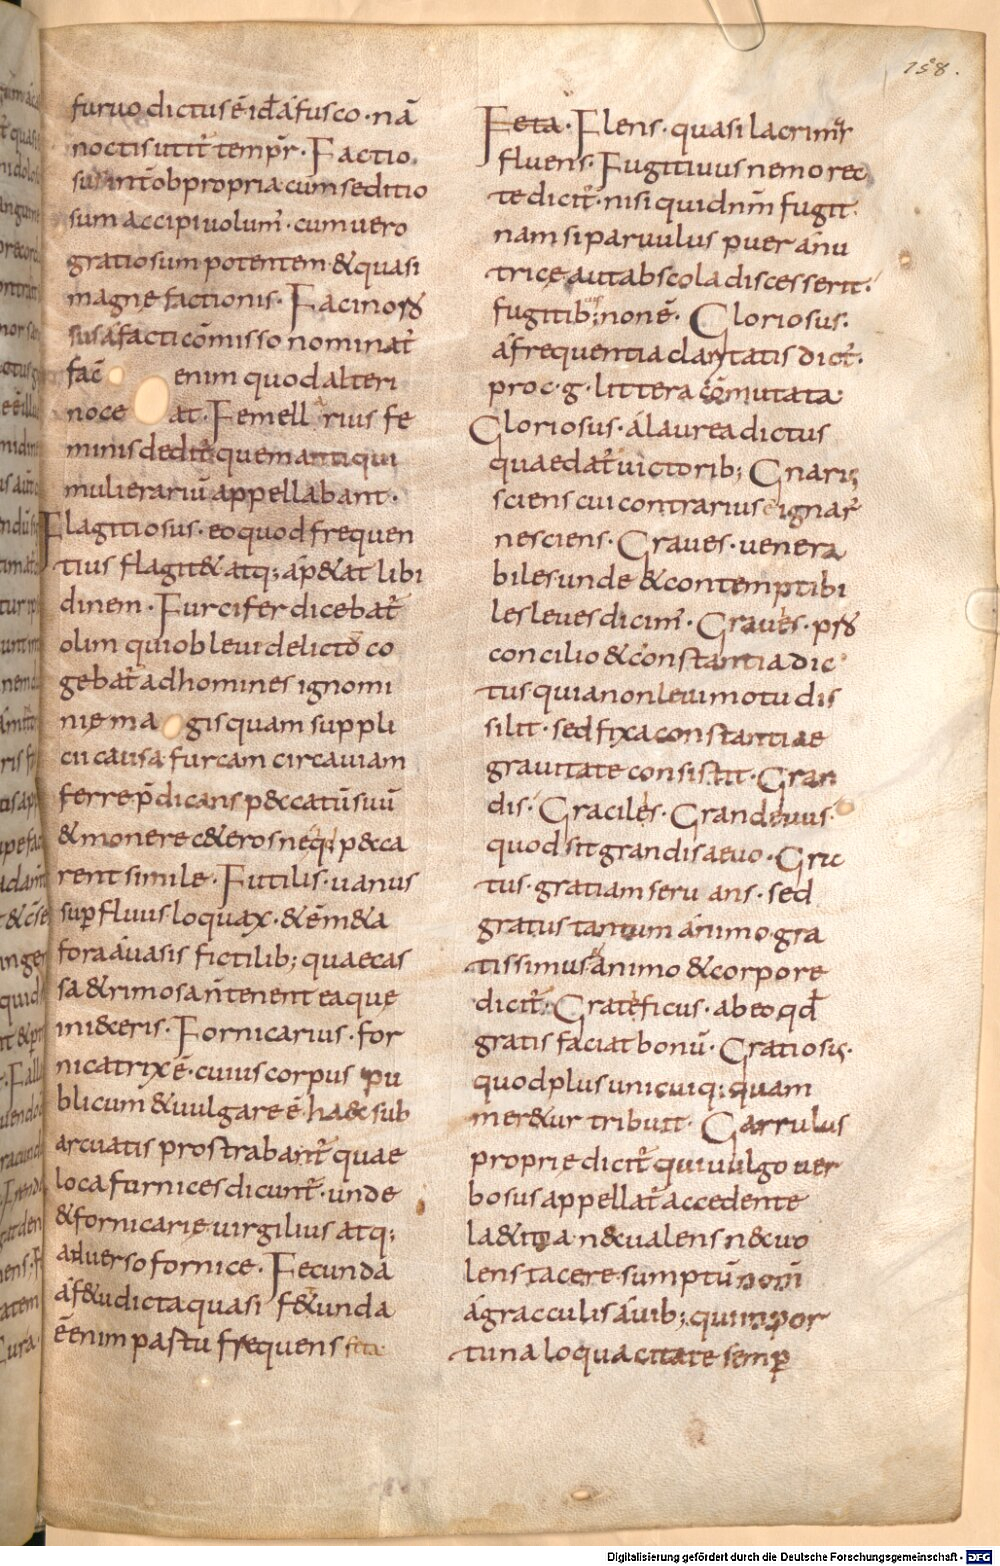 158.
furuo dictus ē id ē á fusco · nā
noctis utit᷑ temp̄r · Factio
sus int̄ ob propria cum seditio
sum accipi uolum᷑ · cum uero
gratiosum potentem & quasi
magne factionis · Facinor
sus á facti cōmisso nominat᷑
fac̄ enim quod alteri
noce at · Femell rius fe
minis dedit᷑ quem antiqui
mulierariū appellabant ·
Flagitiosus · eo quod frequen
tius flagit& atq; áp&at libi
dinem · Furcifer dicebat᷑
olim qui ob leui delicto co
gebat᷑ ad homines ignomi
nie ma gis quam suppli
cii causa furcam circa uiam
ferre p̄dicans p&ccatū suū
& monere c&eros ne q p&cca
rent simile · Futilis · uanus
sup̱fluus loquax · & ēm &a
fora á uasis fictilib; quae cas
sa & rimosa n̄ tenent ea que
ini&ceris · Fornicarius · for
nicatrix ē · cuius corpus pu
blicum & uulgare ē · ha&c sub
arcuatis prostrabant᷑ quae
loca furnices dicunt᷑ · unde
& fornicarie uirgilius atq;
aduerso fornice · Fecunda
á f&u dicta quasi f&unda
ē enim pastu frequens feta
Feta · Flens · quasi lacrim
fluens · Fugitiuus nemo rec
te dicit᷑ · nisi qui dn̄m fugit ·
nam si paruulus puer á nu
trice aut ab scola discesserit ·
fugitib; non ē · Gloriosus ·
á frequentia claritatis dict᷑ ·
pro · c · g · littera cōmutata ·
Gloriosus · á laurea dictus
quae dat᷑ uictorib; Gnarus
sciens cui contrarius ē ignar᷑
nesciens · Graues · uenera
biles unde & contemptibi
les leues dicim᷑ · Graues ·
concilio & constantia dic
tus quia non leui motu dis
silit · sed fixa constantiae
grauitate consistit · Gran
dis · Graciles · Grandeuus ·
quod sit grandis aeuo · Gra
tus · gratiam seru ans · sed
gratus tantum ánimo gra
tissimus animo & corpore
dicit᷑ · Grateficus · ab eo qd̄
gratis faciat bonū · Gratiosus ·
quod plus unicuiq; quam
mer&ur tribuit · Garrulus
proprie dicit᷑ qui uulgo uer
bosus appellat᷑ accedente
la&itia n&c ualens n&c uo
lens tacere · sumptū nom̄
á gracculis áuib; qui inpor
tuna loquacitate semp̱
Digitalisierung gefördert durch die Deutsche Forschungsgemeinschaft - DFG